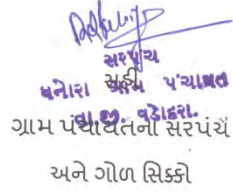 સરપંચ
સહી
ધનોરા ગ્રામ પંચાયત
તા.જી. વડોદરા.
ગ્રામ પંચાયતના સરપંચ
અને ગોળ સિક્કો